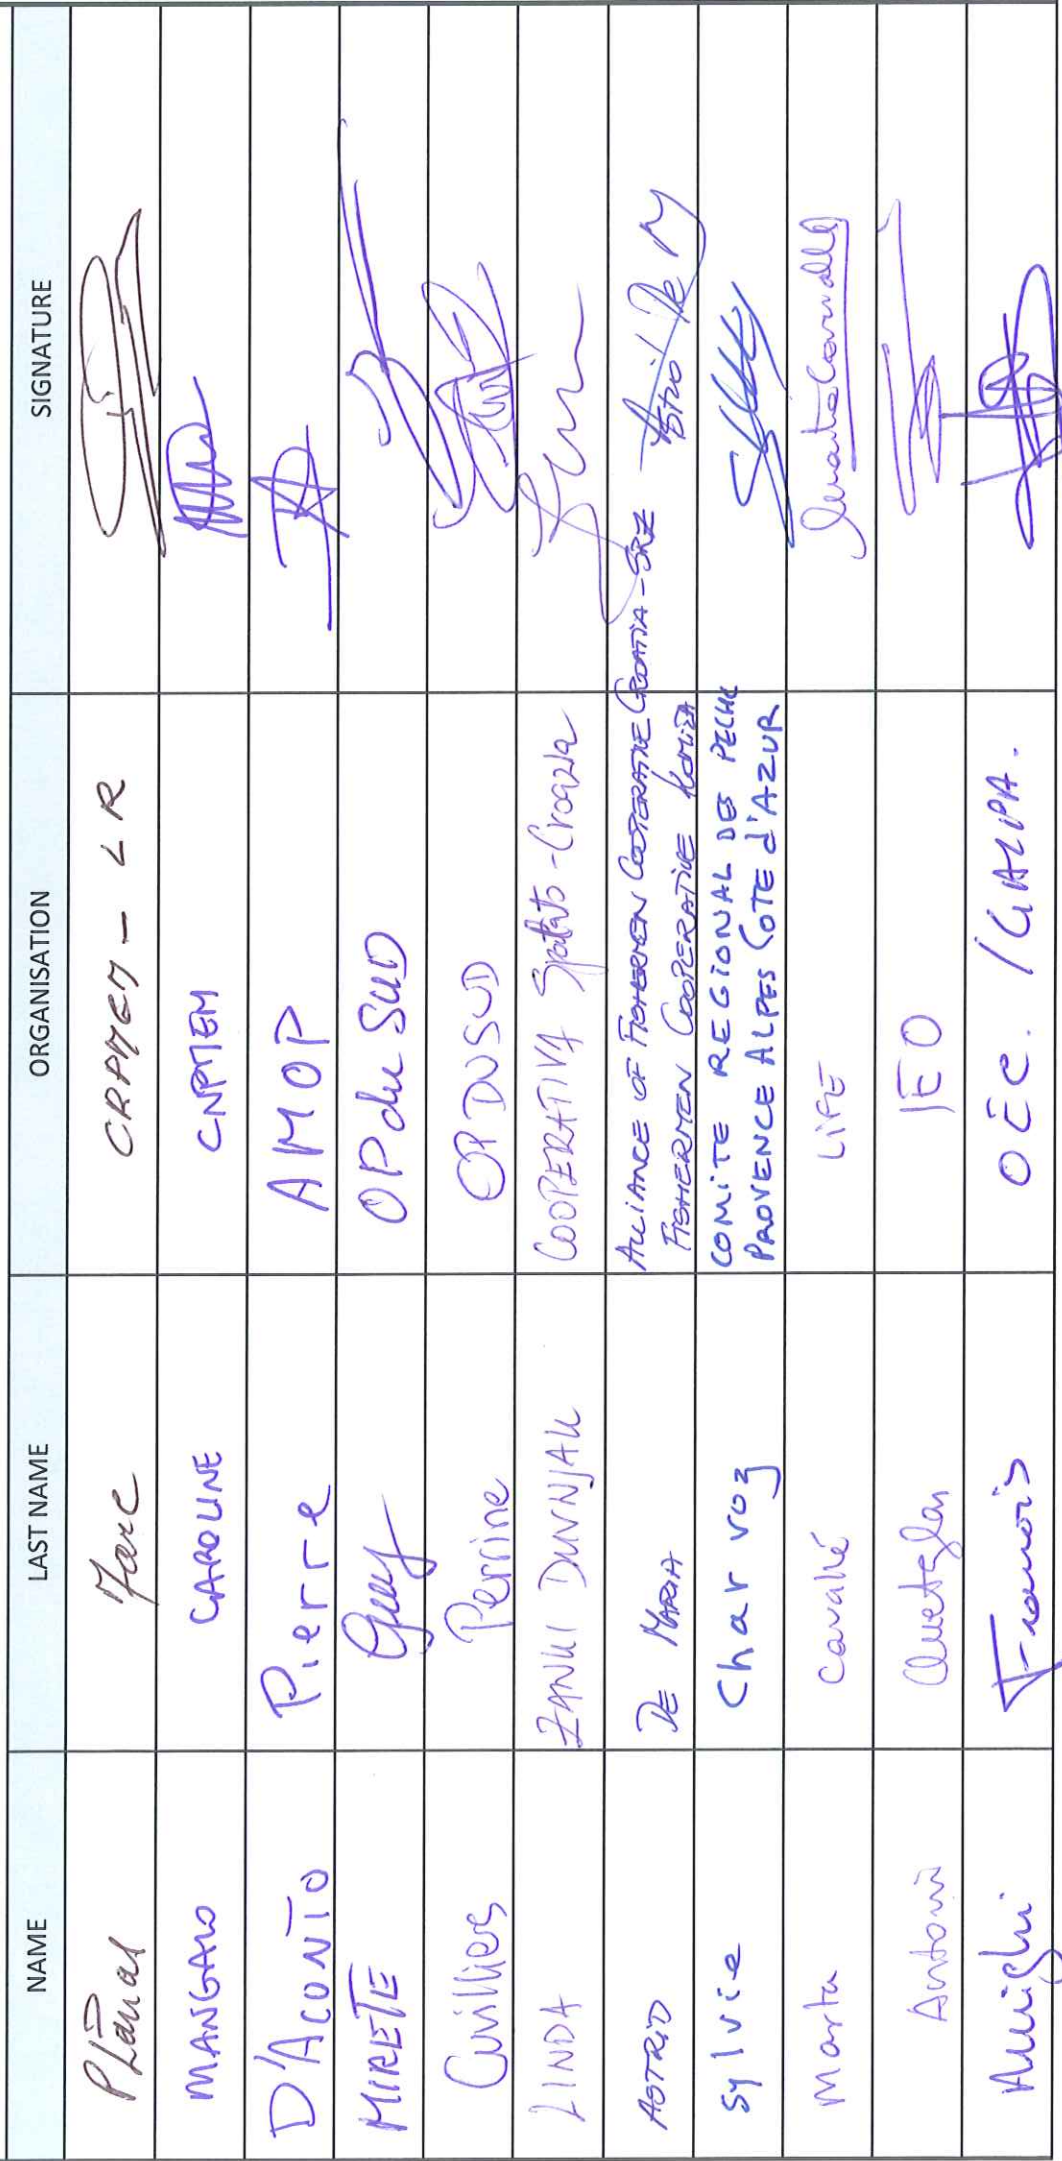 NAME LAST NAME ORGANISATION SIGNATURE
Planas Marc CRPMEM - LR
MANGALO CAROLINE CNPMEM
D'ACONTO Pierre AMOP
MIRETE Guy OP du SUD
Cuilliers Perrine OP DU SUD
LINDA ZANKI DUVNJAK COOPERATIVA Spalato - Croazia
ASTRID DE MARIA ALLIANCE OF FISHERMEN COOPERATIVE CROATIA - SRZ
FISHERMEN COOPERATIVE KOMIŽA
Sylvie Charvoz COMITE REGIONAL DES PECHE
PROVENCE ALPES COTE d'AZUR
Marta Cavallé LIFE Marta Cavallé
Antoni Quetglas IEO
François OEC.